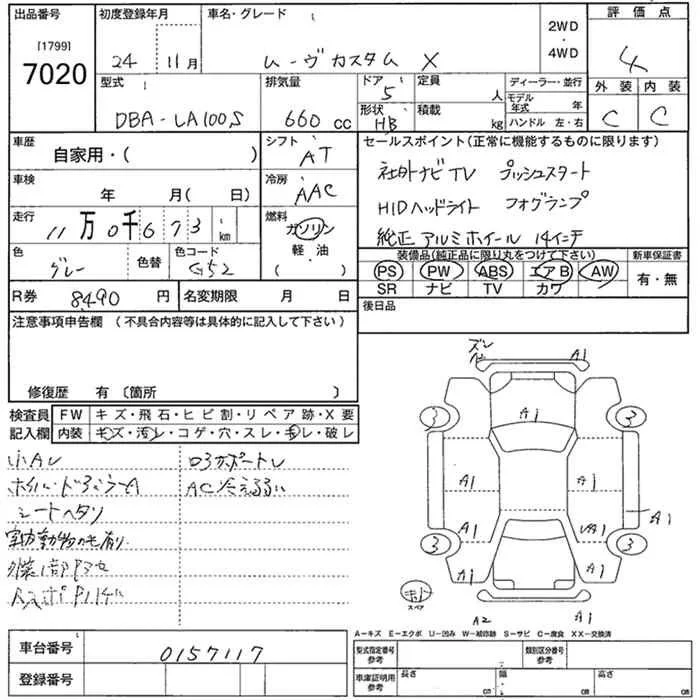 出品番号 初度登録年月 車名・グレード 2WD・4WD 評価点
[1799]
7020
24 11月 ムーヴカスタム X 4
型式 排気量 ドア 5 定員 人 ディーラー・並行 外装 内装
DBA-LA100S 660 cc 形状 HB 積載 kg モデル年式 年 C C
ハンドル 左・右
車歴 自家用・( ) シフト AT セールスポイント(正常に機能するものに限ります)
車検 年 月( 日) 冷房 AAC 社外ナビTV プッシュスタート
HIDヘッドライト フォグランプ
走行 11万0千673 km 燃料 ガソリン 軽・油 ( )
純正アルミホイール 14インチ
色 グレー 色替 色コード G52 装備品(純正品に限り丸をつけて下さい) 新車保証書
PS PW ABS エアB AW 有・無
SR ナビ TV カワ
R券 8490 円 名変期限 月 日 後日品
注意事項申告欄 (不具合内容等は具体的に記入して下さい)
修復歴 有 〔箇所 〕
検査員記入欄 FW キズ・飛石・ヒビ割・リペア跡・X要
内装 キズ・汚レ・コゲ・穴・スレ・モレ・破レ
小Aレ
シートヘタリ
A1
A1
3 3
A1 A1
A1 A1
A1
3 3
A1 A1
スペア
A2 A1
A-キズ E-エクボ U-凹み W-補修跡 S-サビ C-腐食 XX-交換済
車台番号 0157117 型式指定番号 参考 類別区分番号 参考
登録番号 車庫証明用 参考 長さ cm 幅 cm 高さ cm